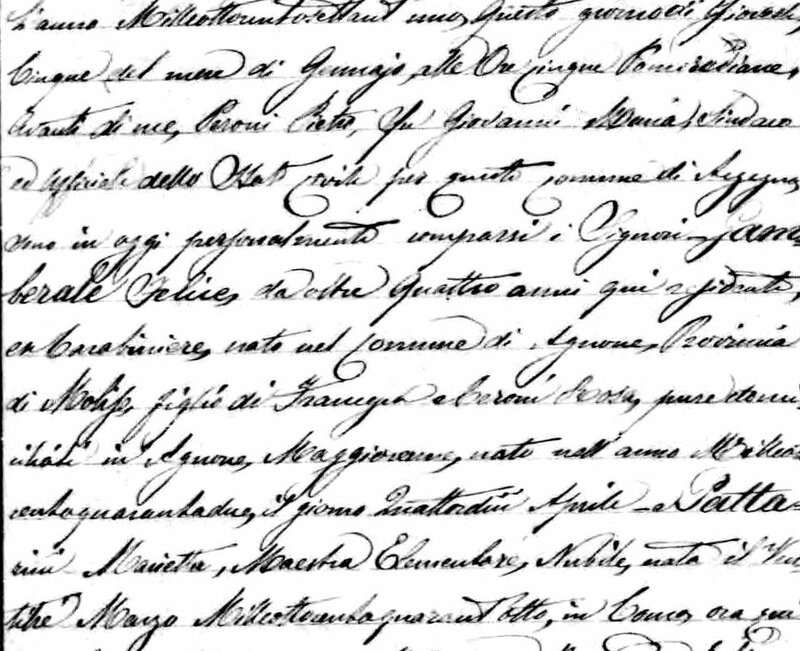 L'anno Milleottocentosettant'uno, Questo giorno di Giovedi,
Cinque del mese di Gennajo, alle Ore cinque Pomeridiane,
Avanti di me, Peroni Pietro, fu Giovanni Maria, Sindaco
ed Ufficiale dello Stato Civile per questo Comune di Argegno,
sono in oggi personalmente comparsi i Signori Jam
berale Felice, da oltre quattro anni qui residente,
ex Carabiniere, nato nel Comune di Agnone, Provincia
di Molise, figlio di Francesco e Rosa, pure domi
ciliati in Agnone, Maggiorenne, nato nell'anno Milleot
centoquarantadue, il giorno Quattordici Aprile - e Patta-
rini Marietta, Maestra Elementare, Nubile, nata il Ven
titré Marzo Milleottocentoquarant'otto, in Como, ora qui